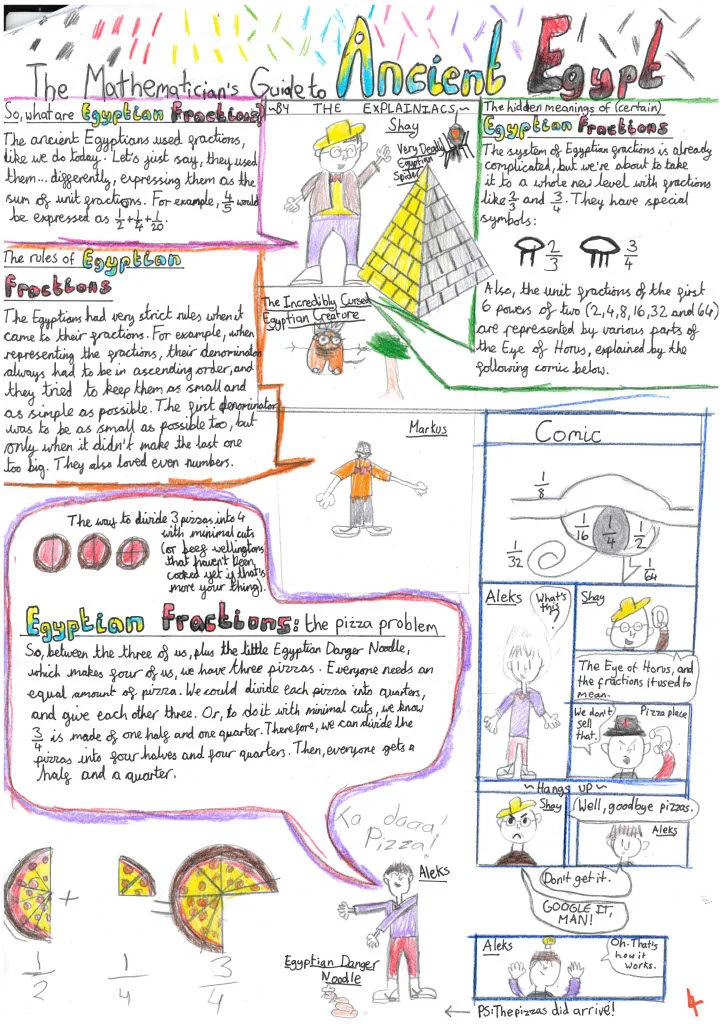 The Mathematician's Guide to Ancient Egypt
So, what are Egyptian Fractions?
The ancient Egyptians used fractions,
like we do today. Let's just say, they used
them... differently, expressing them as the
sum of unit fractions. For example, 4/5 would
be expressed as 1/2+1/4+1/20.
~BY THE EXPLAINIACS~
Shay
Very Deadly
Egyptian
Spider
The Incredibly Cursed
Egyptian Creature
The hidden meanings of (certain)
Egyptian Fractions
The system of Egyptian fractions is already
complicated, but we're about to take
it to a whole new level with fractions
like 2/3 and 3/4. They have special
symbols:
2/3
3/4
Also, the unit fractions of the first
6 powers of two (2,4,8,16,32 and 64)
are represented by various parts of
the Eye of Horus, explained by the
following comic below.
The rules of Egyptian
Fractions
The Egyptians had very strict rules when it
came to their fractions. For example, when
representing the fractions, their denominator
always had to be in ascending order, and
they tried to keep them as small and
as simple as possible. The first denominator
was to be as small as possible too, but
only when it didn't make the last one
too big. They also loved even numbers.
Markus
The way to divide 3 pizzas into 4
with minimal cuts
(or beef wellingtons
that haven't been
cooked yet if that's
more your thing).
Egyptian Fractions: the pizza problem
So, between the three of us, plus the little Egyptian Danger Noodle,
which makes four of us, we have three pizzas. Everyone needs an
equal amount of pizza. We could divide each pizza into quarters,
and give each other three. Or, to do it with minimal cuts, we know
3/4 is made of one half and one quarter. Therefore, we can divide the
pizzas into four halves and four quarters. Then, everyone gets a
half and a quarter.
Ta daaa!
Pizza!
Aleks
Egyptian Danger
Noodle
+
=
1/2
1/4
3/4
Comic
1/8
1/16
1/4
1/2
1/32
1/64
Aleks
What's
this?
Shay
The Eye of Horus, and
the fractions it used to
mean.
We don't
sell
that.
Pizza place
~Hangs up~
Shay
Well, goodbye pizzas.
Aleks
Don't get it.
GOOGLE IT,
MAN!
Aleks
Oh. That's
how it
works.
← PS: The pizzas did arrive!